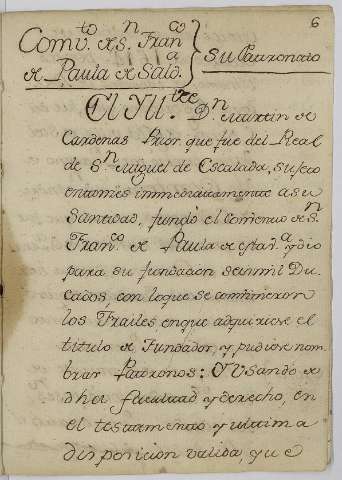 6
Comv.to de S.n Fran.co
de Paula de Sald.a
su Patronato
El Yll.tre D.n Martin de
Cardenas Prior que fue del Real
de S.n Miguel de Escalada, sujeto
entonces inmediatamente a su
Santidad, fundo el comvento de S.n
Fran.co de Paula de esta d.a y dio
para su fundacion seis mil Du-
cados, con lo que se combinieron
los Frailes, en que adquiriese el
titulo de Fundador, y pudiese nom-
brar Patronos: Y Usando de
dha facultad y derecho, en
el testamento y ultima
disposicion valida, que